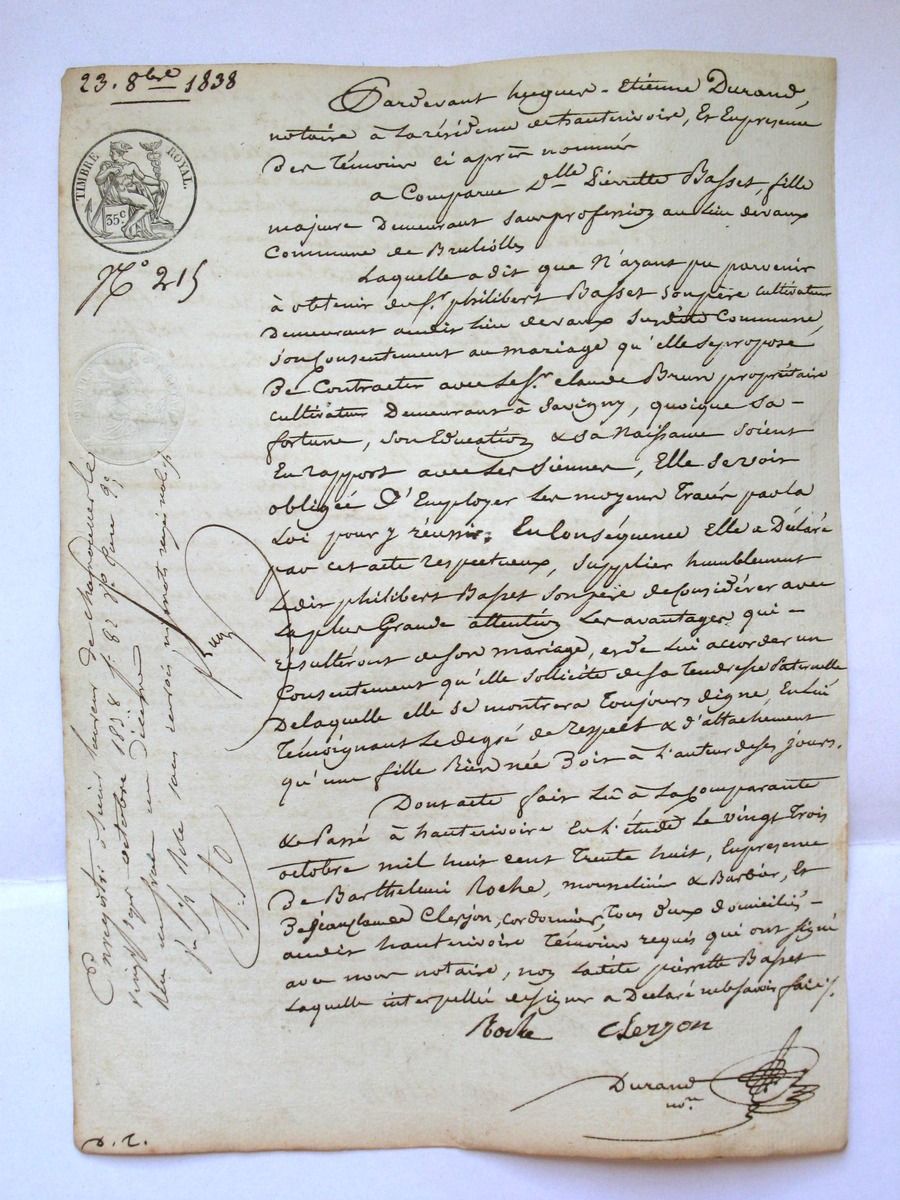 23. 8bre 1838
TIMBRE ROYAL.
35c
N° 215
Pardevant hugues-Etienne Durand,
notaire à la résidence de hauterivoire, Et En presence
des Témoins ci après nommés
a Comparu Dlle Pierrette Basset, fille
majeure Demeurant sans profession au lieu de vaux
Commune de Brulliolles
Laquelle a dit que N'ayant pu parvenir
à obtenir du Sr philibert Basset son père cultivateur
demeurant audit lieu de vaux susdite Commune,
son Consentement au mariage qu'elle se propose
de Contracter avec le Sr claude Brun propriétaire
cultivateur Demeurant à Savigny, quoique sa
fortune, son Education & sa Naissance soient
En rapport avec les siennes, Elle se voit
obligée d'Employer les moyens Tracés par la
Loi pour y réussir. En Conséquence Elle a Déclaré
par cet acte respectueux, supplier humblement
Ledit philibert Basset son père de Considérer avec
La plus Grande attention les avantages qui
résulteront de son mariage, et de Lui accorder un
Consentement qu'elle sollicite de sa tendresse Paternelle
De laquelle elle se montrera Toujours digne En Lui
Témoignant Le degré de respect & d'attachement
qu'une fille Bien née Doit à L'auteur de ses jours.
Dont acte fait Lû à La Comparante
& Passé à hauterivoire En L'étude Le vingt Trois
octobre mil huit cent Trente huit, En presence
De Barthelemi Roche, mousselinier & Barbier, Et
De Jean Claude Clerjon, cordonnier, Tous deux domiciliés
audit hauterivoire Témoins requis qui ont signé
avec nous notaire, non Ladite pierrette Basset
Laquelle interpellée de signer a Déclaré ne le savoir faire.
Roche Clerjon
Durand
nore
Enregistré à Saint Laurent de chamousset le
vingt sept octobre 1838 f. 82
Reçu un franc un décime